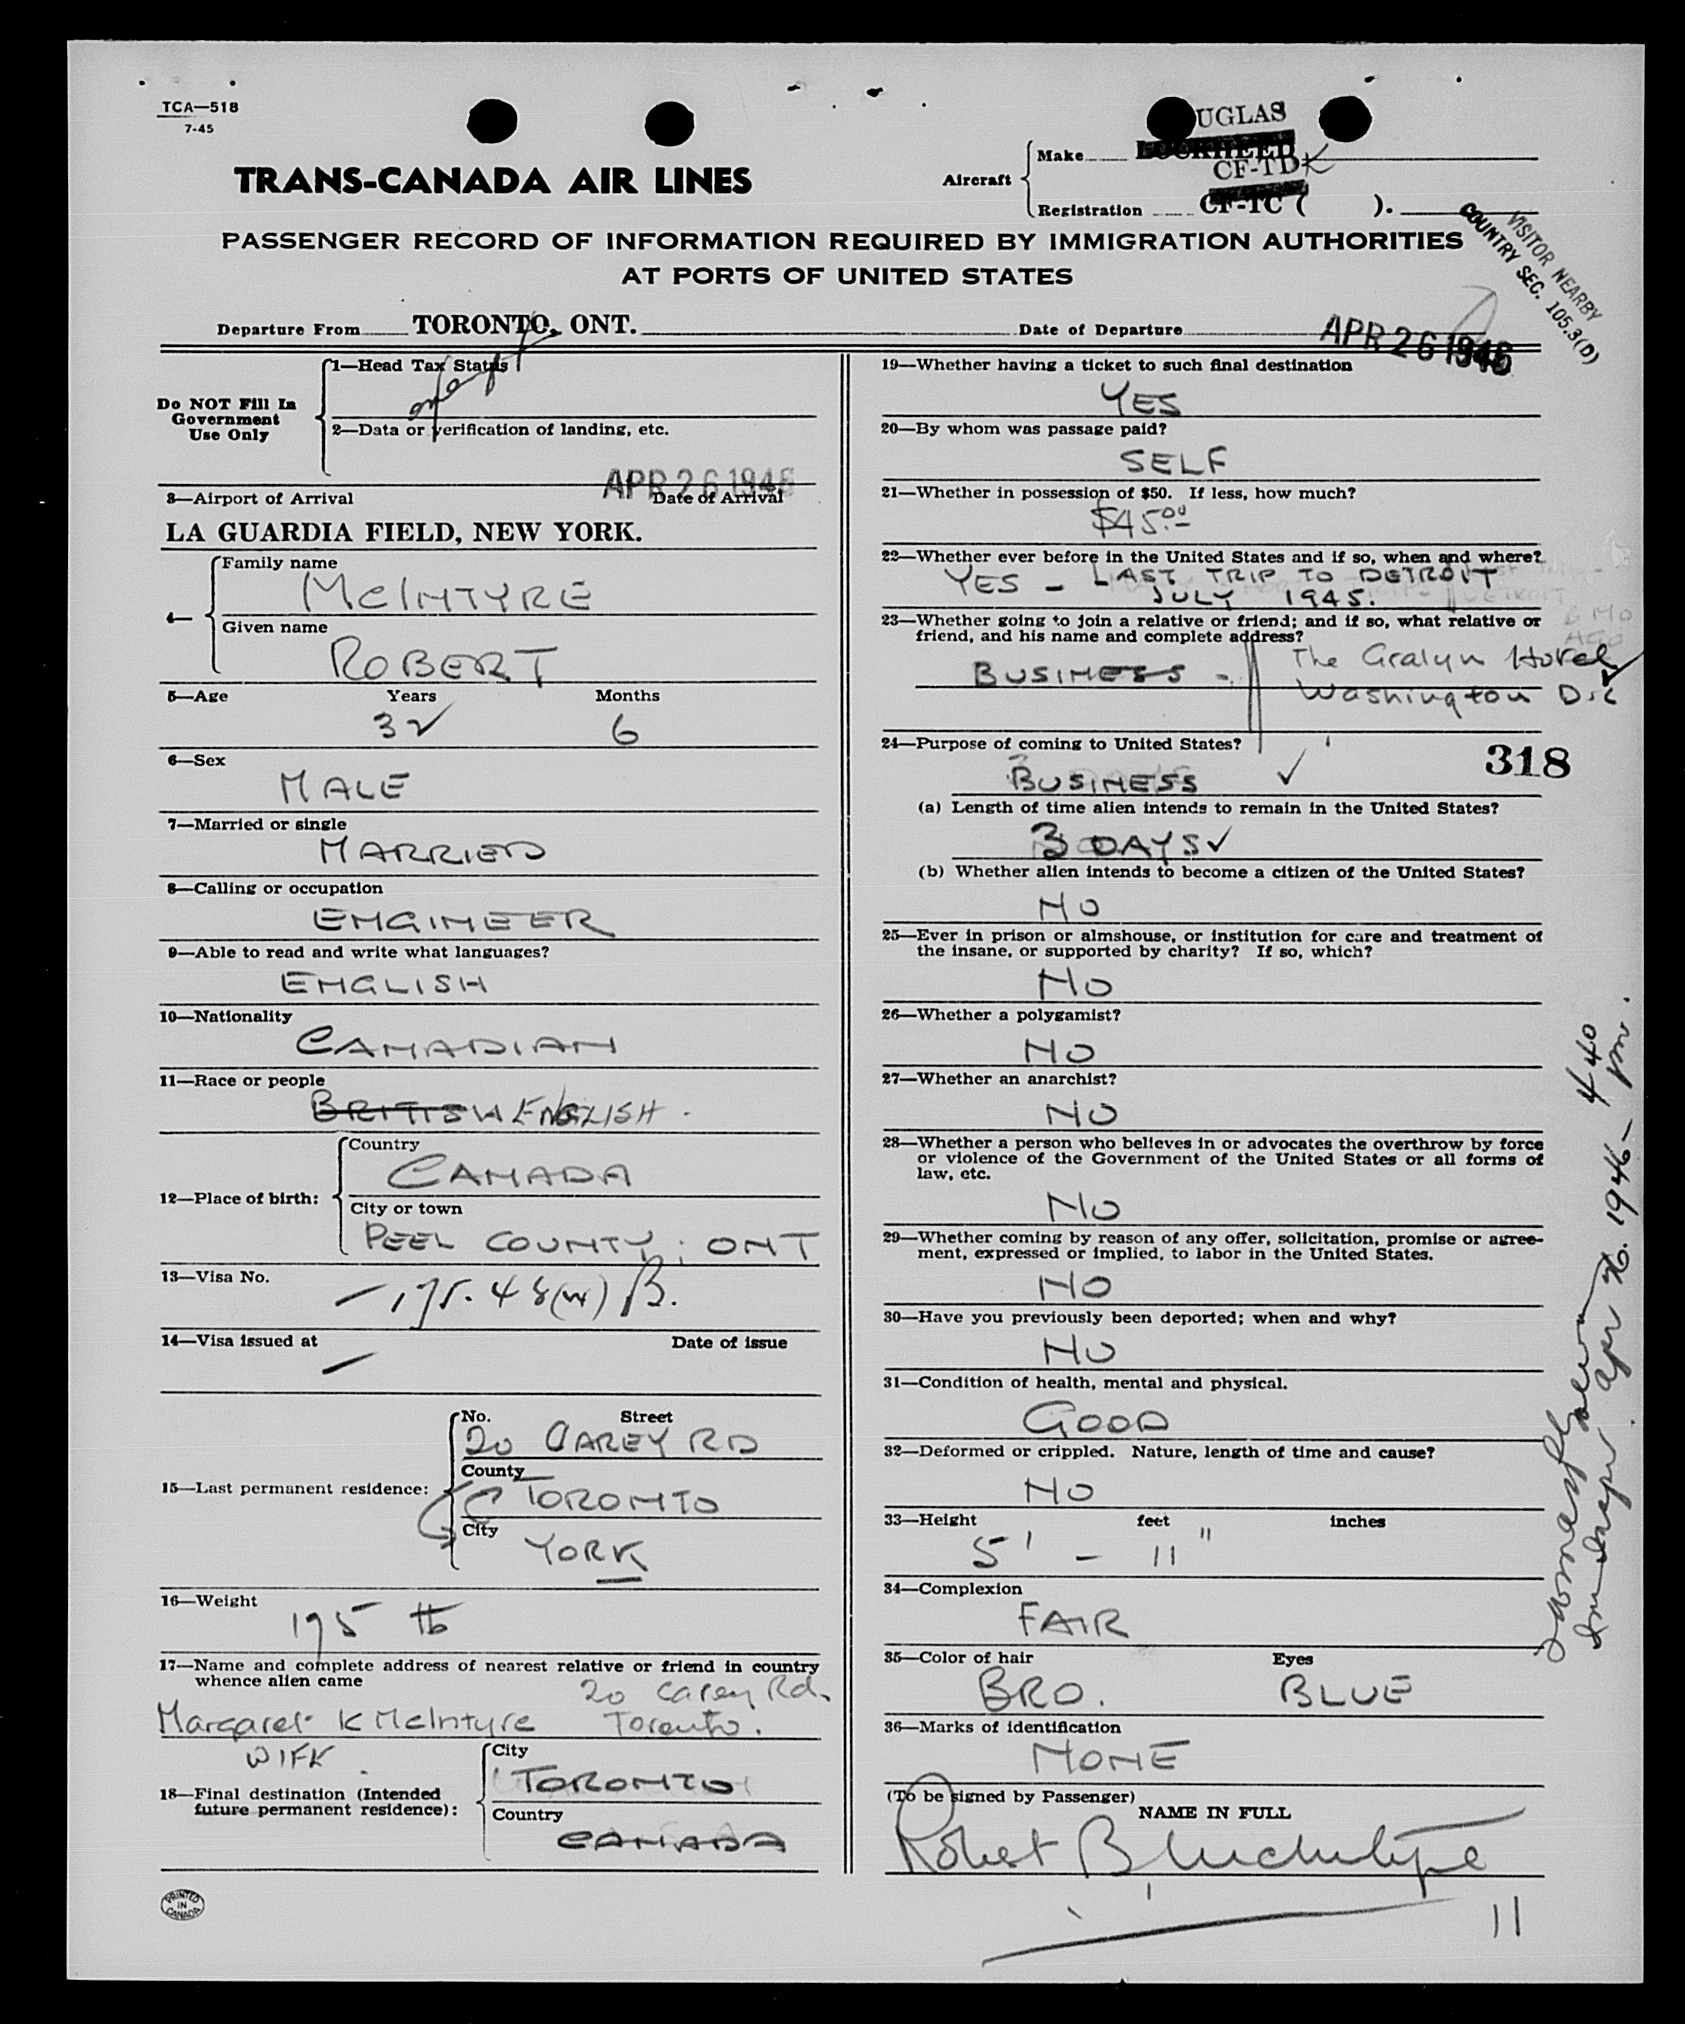 TCA—518
7-45
UGLAS
Make LOCKHEED
CF-TDK
Aircraft
Registration CF-TC ( ).
TRANS-CANADA AIR LINES
VISITOR NEARBY
COUNTRY SEC. 105.3(D)
PASSENGER RECORD OF INFORMATION REQUIRED BY IMMIGRATION AUTHORITIES
AT PORTS OF UNITED STATES
Departure From TORONTO, ONT.
Date of Departure APR 26 1946
Do NOT Fill In
Government
Use Only
1—Head Tax Status
2—Data or verification of landing, etc.
APR 26 1946
3—Airport of Arrival Date of Arrival
LA GUARDIA FIELD, NEW YORK.
4—
Family name
MCINTYRE
Given name
ROBERT
5—Age Years Months
32 6
6—Sex
MALE
7—Married or single
MARRIED
8—Calling or occupation
ENGINEER
9—Able to read and write what languages?
ENGLISH
10—Nationality
CANADIAN
11—Race or people
BRITISH ENGLISH
12—Place of birth:
Country
CANADA
City or town
PEEL COUNTY; ONT
13—Visa No.
— 175.48(w) B.
14—Visa issued at Date of issue
—
15—Last permanent residence:
No. Street
20 CAREY RD
County
TORONTO
City
YORK
16—Weight
195 lb
17—Name and complete address of nearest relative or friend in country
whence alien came
20 Carey Rd.
Margaret K McIntyre Toronto.
WIFE
18—Final destination (Intended
future permanent residence):
City
TORONTO
Country
CANADA
PRINTED
IN
CANADA
19—Whether having a ticket to such final destination
YES
20—By whom was passage paid?
SELF
21—Whether in possession of $50. If less, how much?
$45.00
22—Whether ever before in the United States and if so, when and where?
YES - LAST TRIP TO DETROIT
JULY 1945.
6 MO
AGO
23—Whether going to join a relative or friend; and if so, what relative or
friend, and his name and complete address?
BUSINESS - The Gralyn Hotel
Washington D.C
24—Purpose of coming to United States?
318
BUSINESS
(a) Length of time alien intends to remain in the United States?
3 DAYS
(b) Whether alien intends to become a citizen of the United States?
NO
25—Ever in prison or almshouse, or institution for care and treatment of
the insane, or supported by charity? If so, which?
NO
26—Whether a polygamist?
NO
27—Whether an anarchist?
NO
28—Whether a person who believes in or advocates the overthrow by force
or violence of the Government of the United States or all forms of
law, etc.
NO
29—Whether coming by reason of any offer, solicitation, promise or agree-
ment, expressed or implied, to labor in the United States.
NO
30—Have you previously been deported; when and why?
NO
31—Condition of health, mental and physical.
GOOD
32—Deformed or crippled. Nature, length of time and cause?
NO
33—Height feet inches
5' - 11"
34—Complexion
FAIR
35—Color of hair Eyes
BRO. BLUE
36—Marks of identification
NONE
(To be signed by Passenger)
NAME IN FULL
Robert B McIntyre
11
440
Apr 26. 1946 - pm.